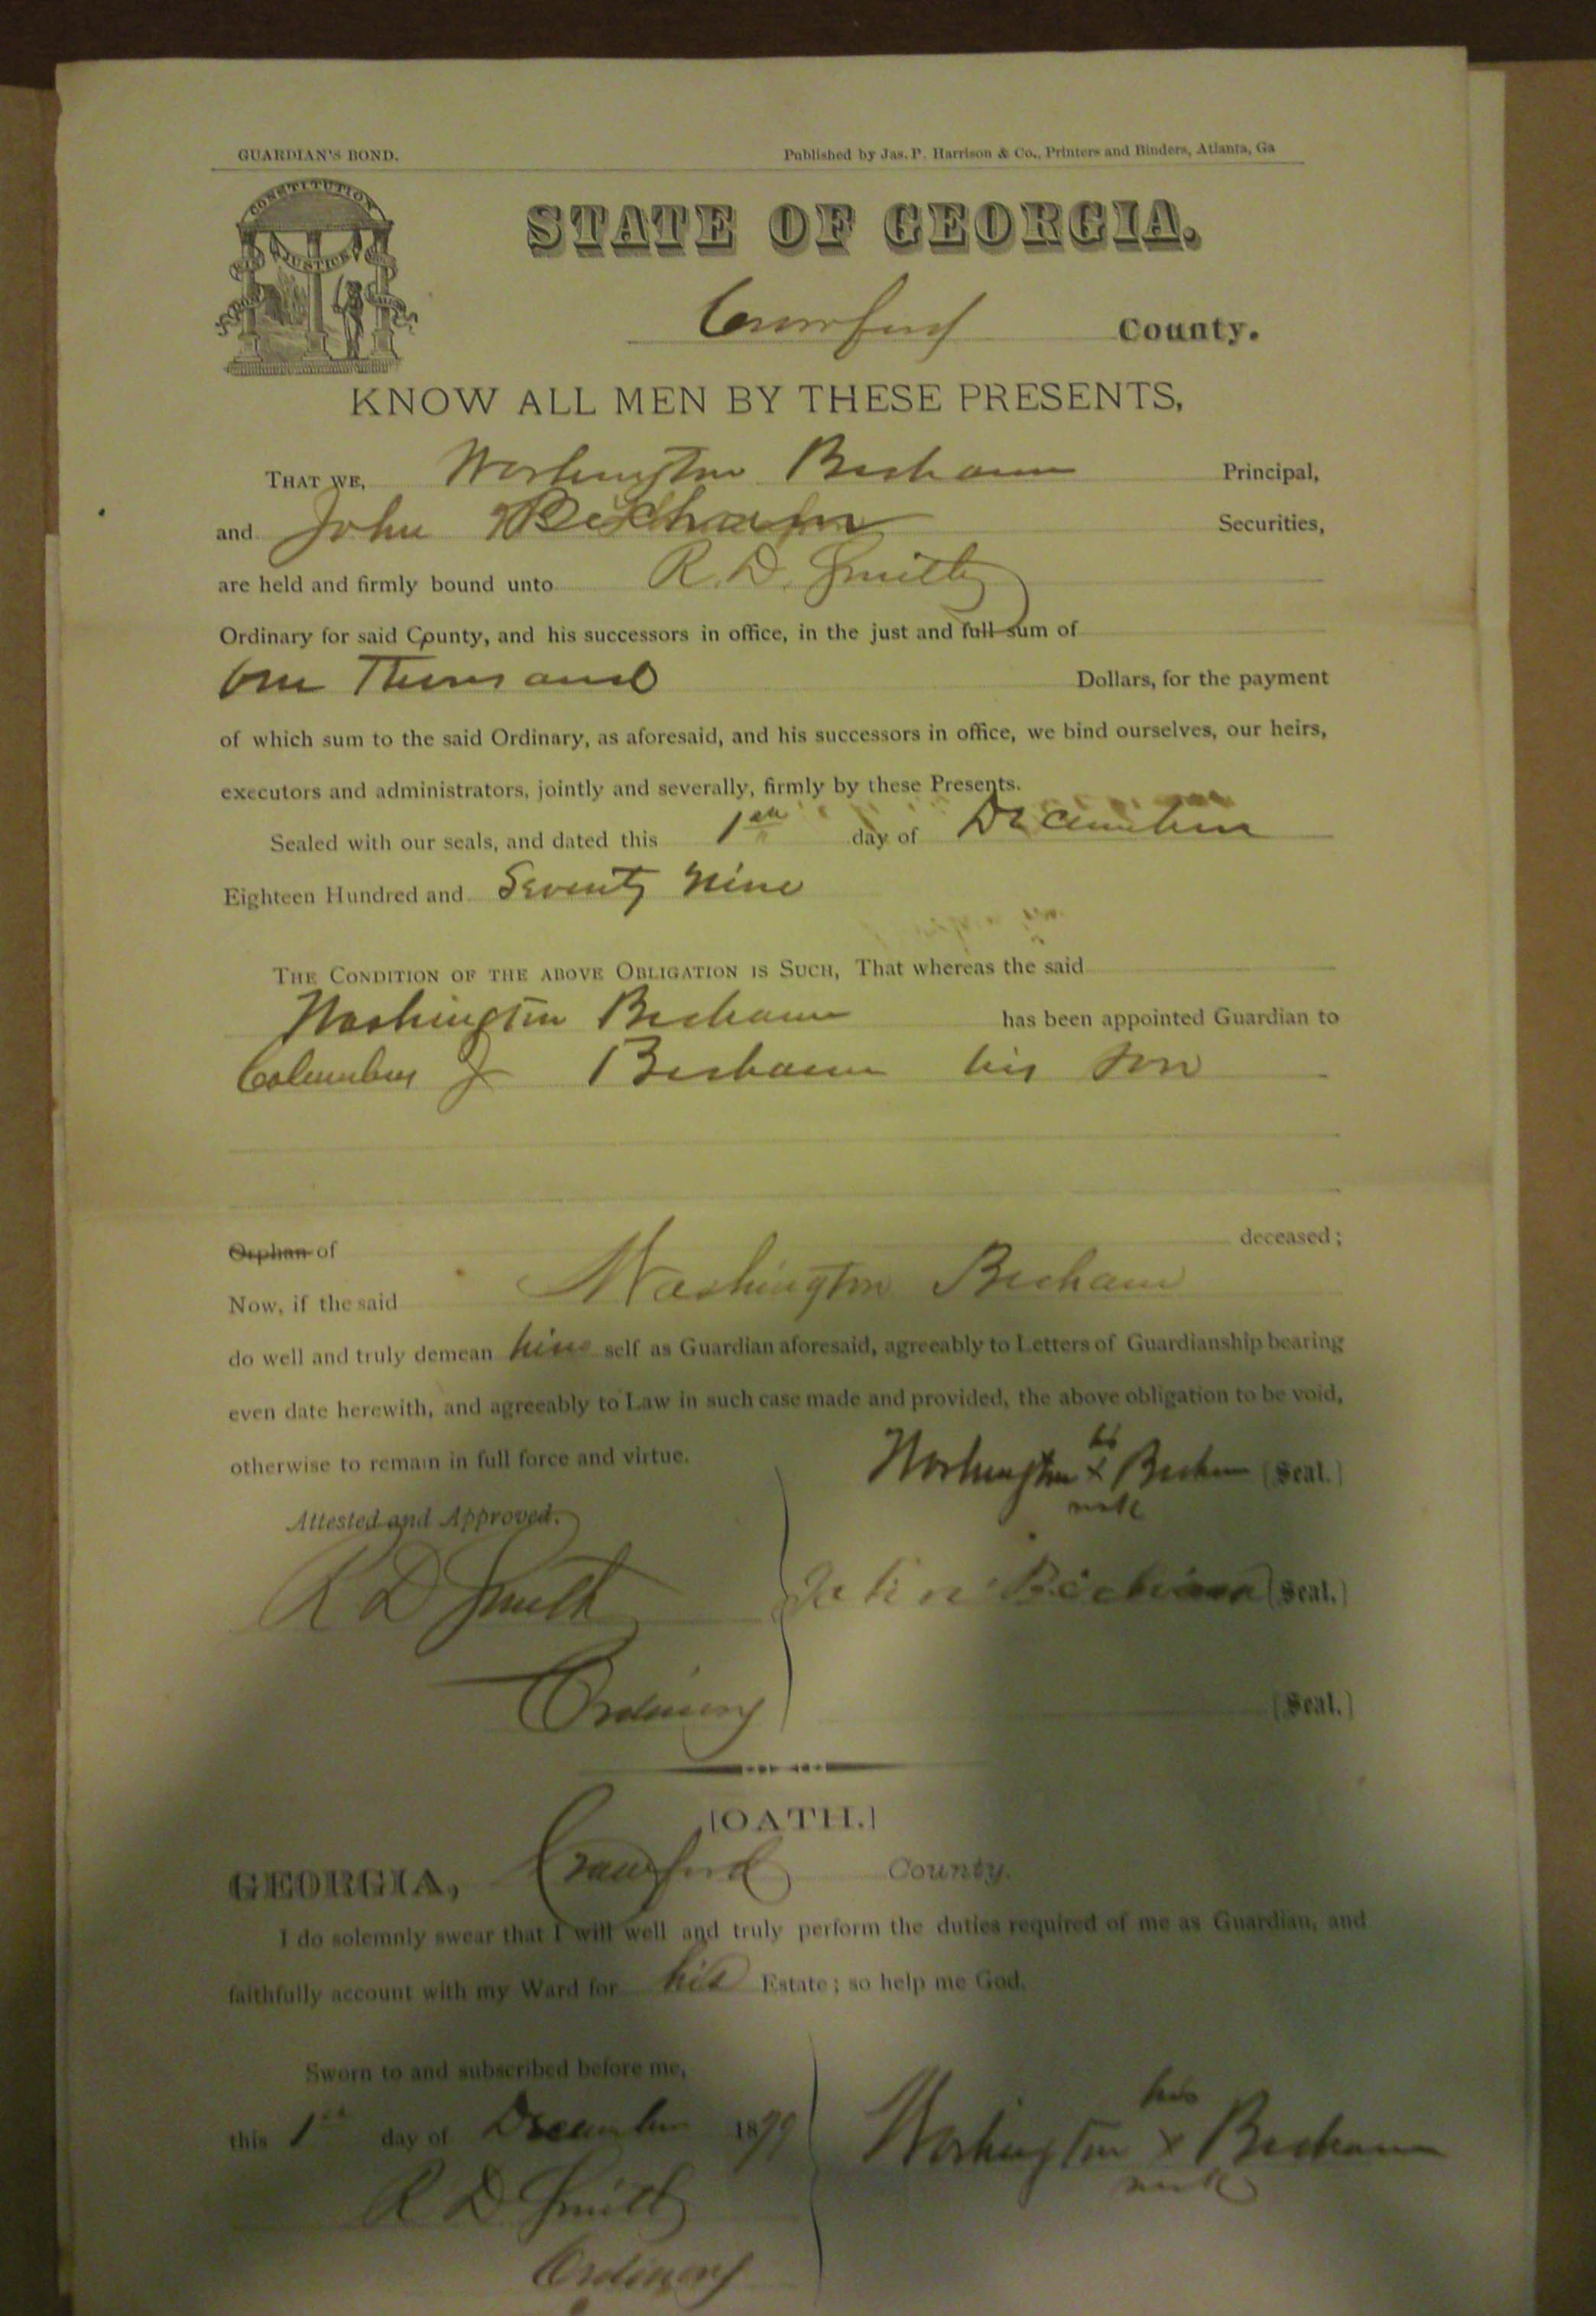 GUARDIAN'S BOND.
Published by Jas. P. Harrison & Co., Printers and Binders, Atlanta, Ga
CONSTITUTION
STATE OF GEORGIA.
Crawford County.
KNOW ALL MEN BY THESE PRESENTS,
THAT WE, Washington Becham Principal,
and John Becham Securities,
are held and firmly bound unto R. D. Smith
Ordinary for said County, and his successors in office, in the just and full sum of
One Thousand Dollars, for the payment
of which sum to the said Ordinary, as aforesaid, and his successors in office, we bind ourselves, our heirs,
executors and administrators, jointly and severally, firmly by these Presents.
Sealed with our seals, and dated this 1st day of December
Eighteen Hundred and Seventy Nine
THE CONDITION OF THE ABOVE OBLIGATION IS SUCH, That whereas the said
Washington Becham has been appointed Guardian to
Columbus J Becham his son
Orphan of deceased;
Now, if the said Washington Becham
do well and truly demean him self as Guardian aforesaid, agreeably to Letters of Guardianship bearing
even date herewith, and agreeably to Law in such case made and provided, the above obligation to be void,
otherwise to remain in full force and virtue.
his
Washington x Becham (Seal.)
mark
Attested and Approved.
R D Smith
John Becham (Seal.)
Ordinary
(Seal.)
[OATH.]
GEORGIA, Crawford County.
I do solemnly swear that I will well and truly perform the duties required of me as Guardian, and
faithfully account with my Ward for his Estate; so help me God.
Sworn to and subscribed before me,
this 1st day of December 1879
his
Washington x Becham
mark
R D Smith
Ordinary